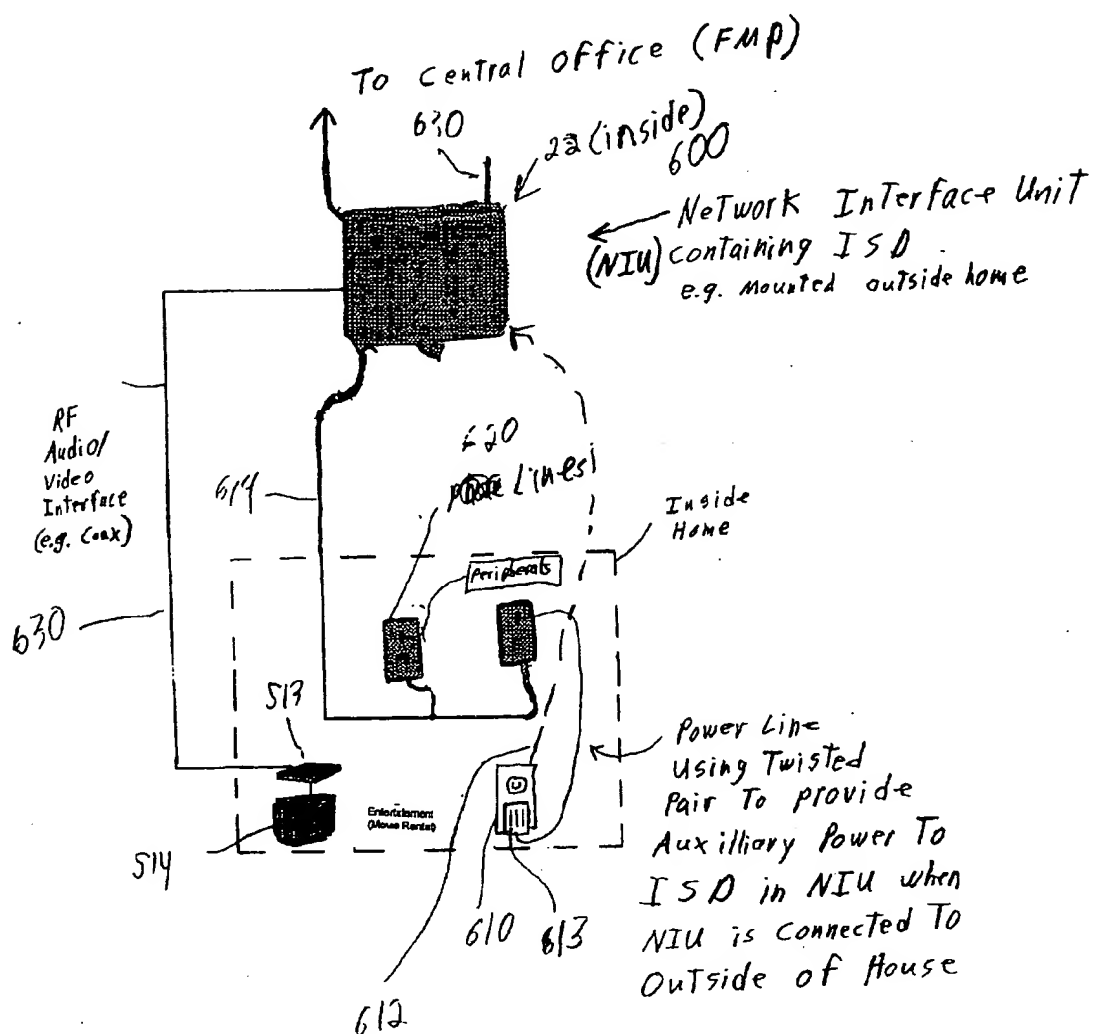 To Central Office (FMP)
630
22 (inside)
600
Network Interface Unit
(NIU) containing ISD
e.g. mounted outside home
RF
Audio/
Video
Interface
(e.g. Coax)
614
620
Lines
Inside
Home
Peripherals
630
513
514
Entertainment
(Movie Rental)
610
613
612
Power Line
Using Twisted
Pair To provide
Auxilliary Power To
ISD in NIU when
NIU is connected To
Outside of House